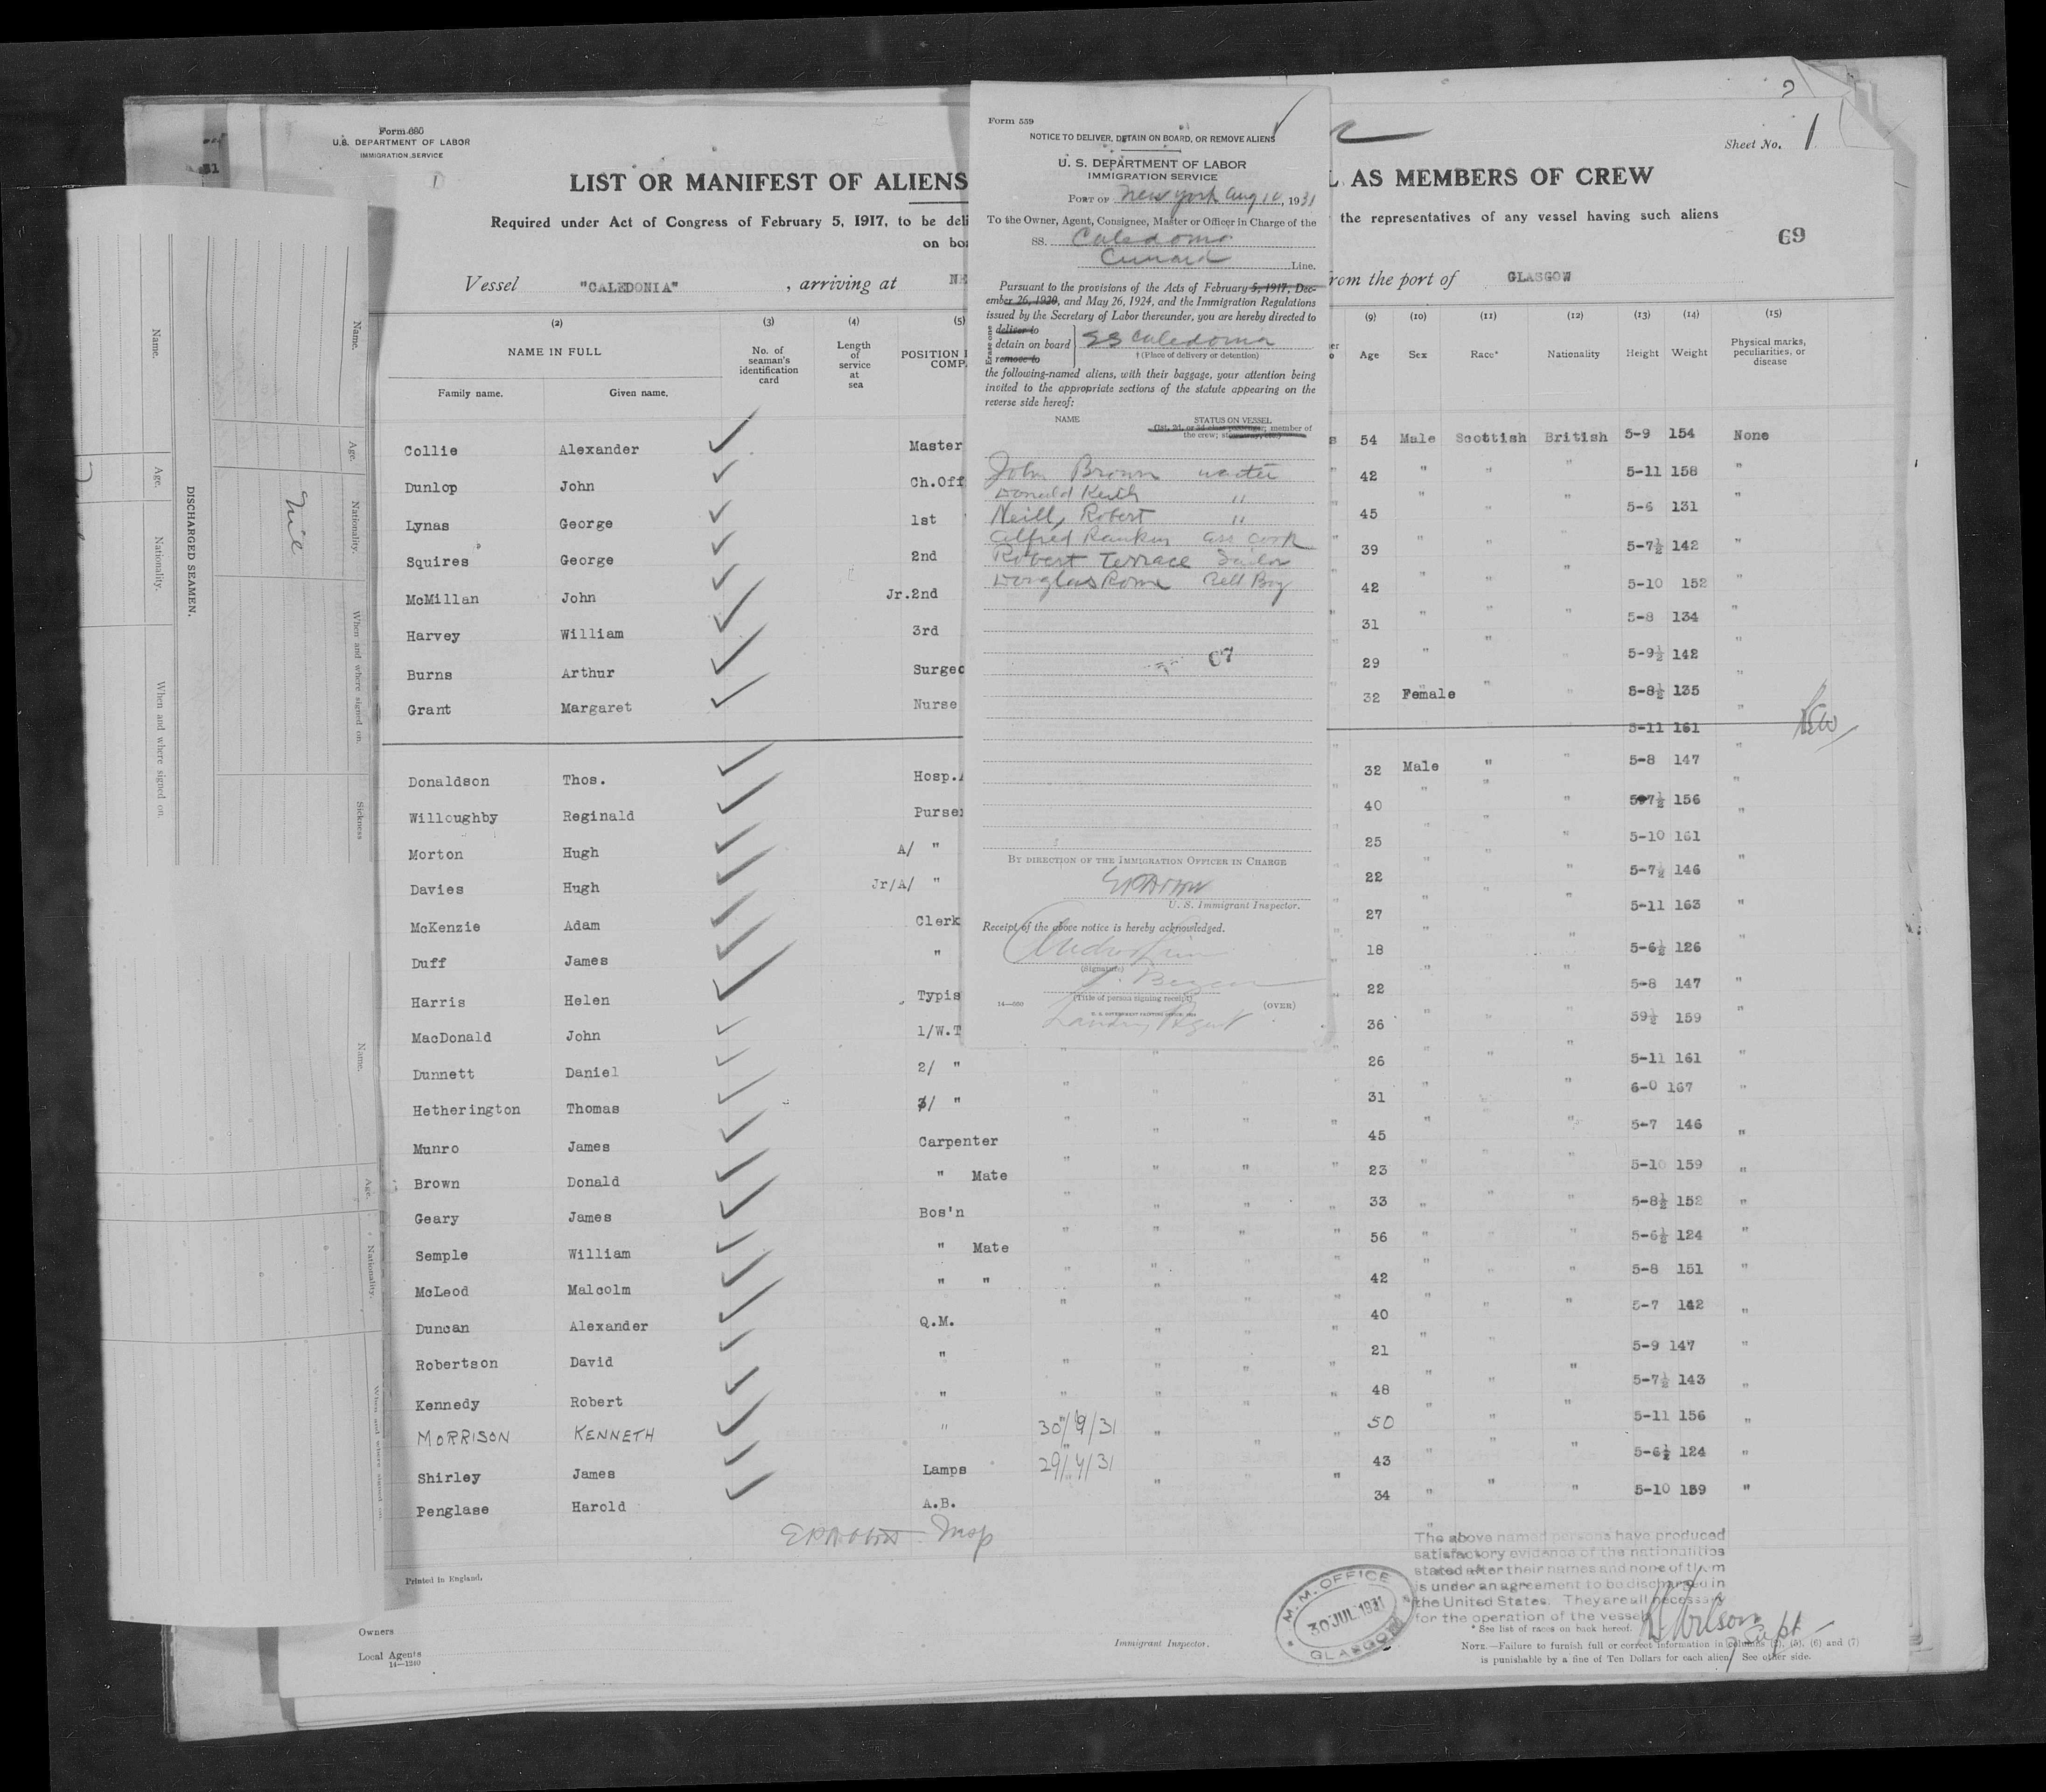 2
Form 680
U.S. DEPARTMENT OF LABOR
IMMIGRATION SERVICE
Sheet No. 1
LIST OR MANIFEST OF ALIENS
AS MEMBERS OF CREW
Required under Act of Congress of February 5, 1917, to be
the representatives of any vessel having such aliens
69
Vessel "CALEDONIA" , arriving at
from the port of GLASGOW
Form 559
NOTICE TO DELIVER, DETAIN ON BOARD, OR REMOVE ALIENS
U. S. DEPARTMENT OF LABOR
IMMIGRATION SERVICE
PORT OF New York Aug 10, 1931
To the Owner, Agent, Consignee, Master or Officer in Charge of the
SS. Caledonia
Cunard Line.
Pursuant to the provisions of the Acts of February 5, 1917, Dec-
ember 26, 1920, and May 26, 1924, and the Immigration Regulations
issued by the Secretary of Labor thereunder, you are hereby directed to
Erase one
deliver to
detain on board SS Caledonia
remove to
† (Place of delivery or detention)
the following-named aliens, with their baggage, your attention being
invited to the appropriate sections of the statute appearing on the
reverse side hereof:
NAME STATUS ON VESSEL
(1st, 2d, or 3d class passenger; member of
the crew; stowaway, etc.)
John Brown waiter
Donald Keith "
Neill, Robert "
Alfred Rankin ass cook
Robert Terrace Sailor
Douglas Rome Bell Boy
67
BY DIRECTION OF THE IMMIGRATION OFFICER IN CHARGE
U. S. Immigrant Inspector.
Receipt of the above notice is hereby acknowledged.
(Signature)
(Title of person signing receipt)
Landing Agent
(OVER)
(2) (3) (4) (5) (9) (10) (11) (12) (13) (14) (15)
NAME IN FULL
Family name. Given name.
No. of seaman's identification card
Length of service at sea
POSITION
Age Sex Race* Nationality Height Weight
Physical marks, peculiarities, or disease
Collie Alexander Master 54 Male Scottish British 5-9 154 None
Dunlop John Ch.Off 42 " " " 5-11 158 "
Lynas George 1st 45 " " " 5-6 131 "
Squires George 2nd 39 " " " 5-7½ 142 "
McMillan John Jr.2nd 42 " " " 5-10 152 "
Harvey William 3rd 31 " " " 5-8 134 "
Burns Arthur 29 " " " 5-9½ 142 "
Grant Margaret Nurse 32 Female " " 5-8½ 135 "
5-11 161 "
Donaldson Thos. Hosp. 32 Male " " 5-8 147 "
Willoughby Reginald Purser 40 " " " 5-7½ 156 "
Morton Hugh A/ " 25 " " " 5-10 161 "
Davies Hugh Jr/A/ " 22 " " " 5-7½ 146 "
McKenzie Adam Clerk 27 " " " 5-11 163 "
Duff James " 18 " " " 5-6½ 126 "
Harris Helen Typis 22 " " " 5-8 147 "
MacDonald John 1/W.T 36 " " " 59½ 159 "
Dunnett Daniel 2/ " 26 " " " 5-11 161 "
Hetherington Thomas 3/ " 31 " " " 6-0 167 "
Munro James Carpenter 45 " " " 5-7 146 "
Brown Donald " Mate 23 " " " 5-10 159 "
Geary James Bos'n 33 " " " 5-8½ 152 "
Semple William " Mate 56 " " " 5-6½ 124 "
McLeod Malcolm " " 42 " " " 5-8 151 "
Duncan Alexander Q.M. 40 " " " 5-7 142 "
Robertson David " 21 " " " 5-9 147 "
Kennedy Robert " 48 " " " 5-7½ 143 "
MORRISON KENNETH " 30/9/31 50 " " " 5-11 156 "
Shirley James Lamps 29/4/31 43 " " " 5-6½ 124 "
Penglase Harold A.B. 34 " " " 5-10 159 "
Insp
The above named persons have produced
satisfactory evidence of the nationalities
stated after their names and none of them
is under an agreement to be discharged in
the United States. They are all necessary
for the operation of the vessel
Wilson
Supt
M.M. OFFICE
30 JUL 1931
GLASGOW
Printed in England.
Owners
Local Agents
14—1240
Immigrant Inspector.
* See list of races on back hereof.
NOTE.—Failure to furnish full or correct information in columns (4), (5), (6) and (7)
is punishable by a fine of Ten Dollars for each alien. See other side.
DISCHARGED SEAMEN.
Name.
Age.
Nationality.
When and where signed on.
Sickness
Nil
Name.
Age.
Nationality.
When and where signed on.
Name.
Age.
Nationality.
When and where signed on.